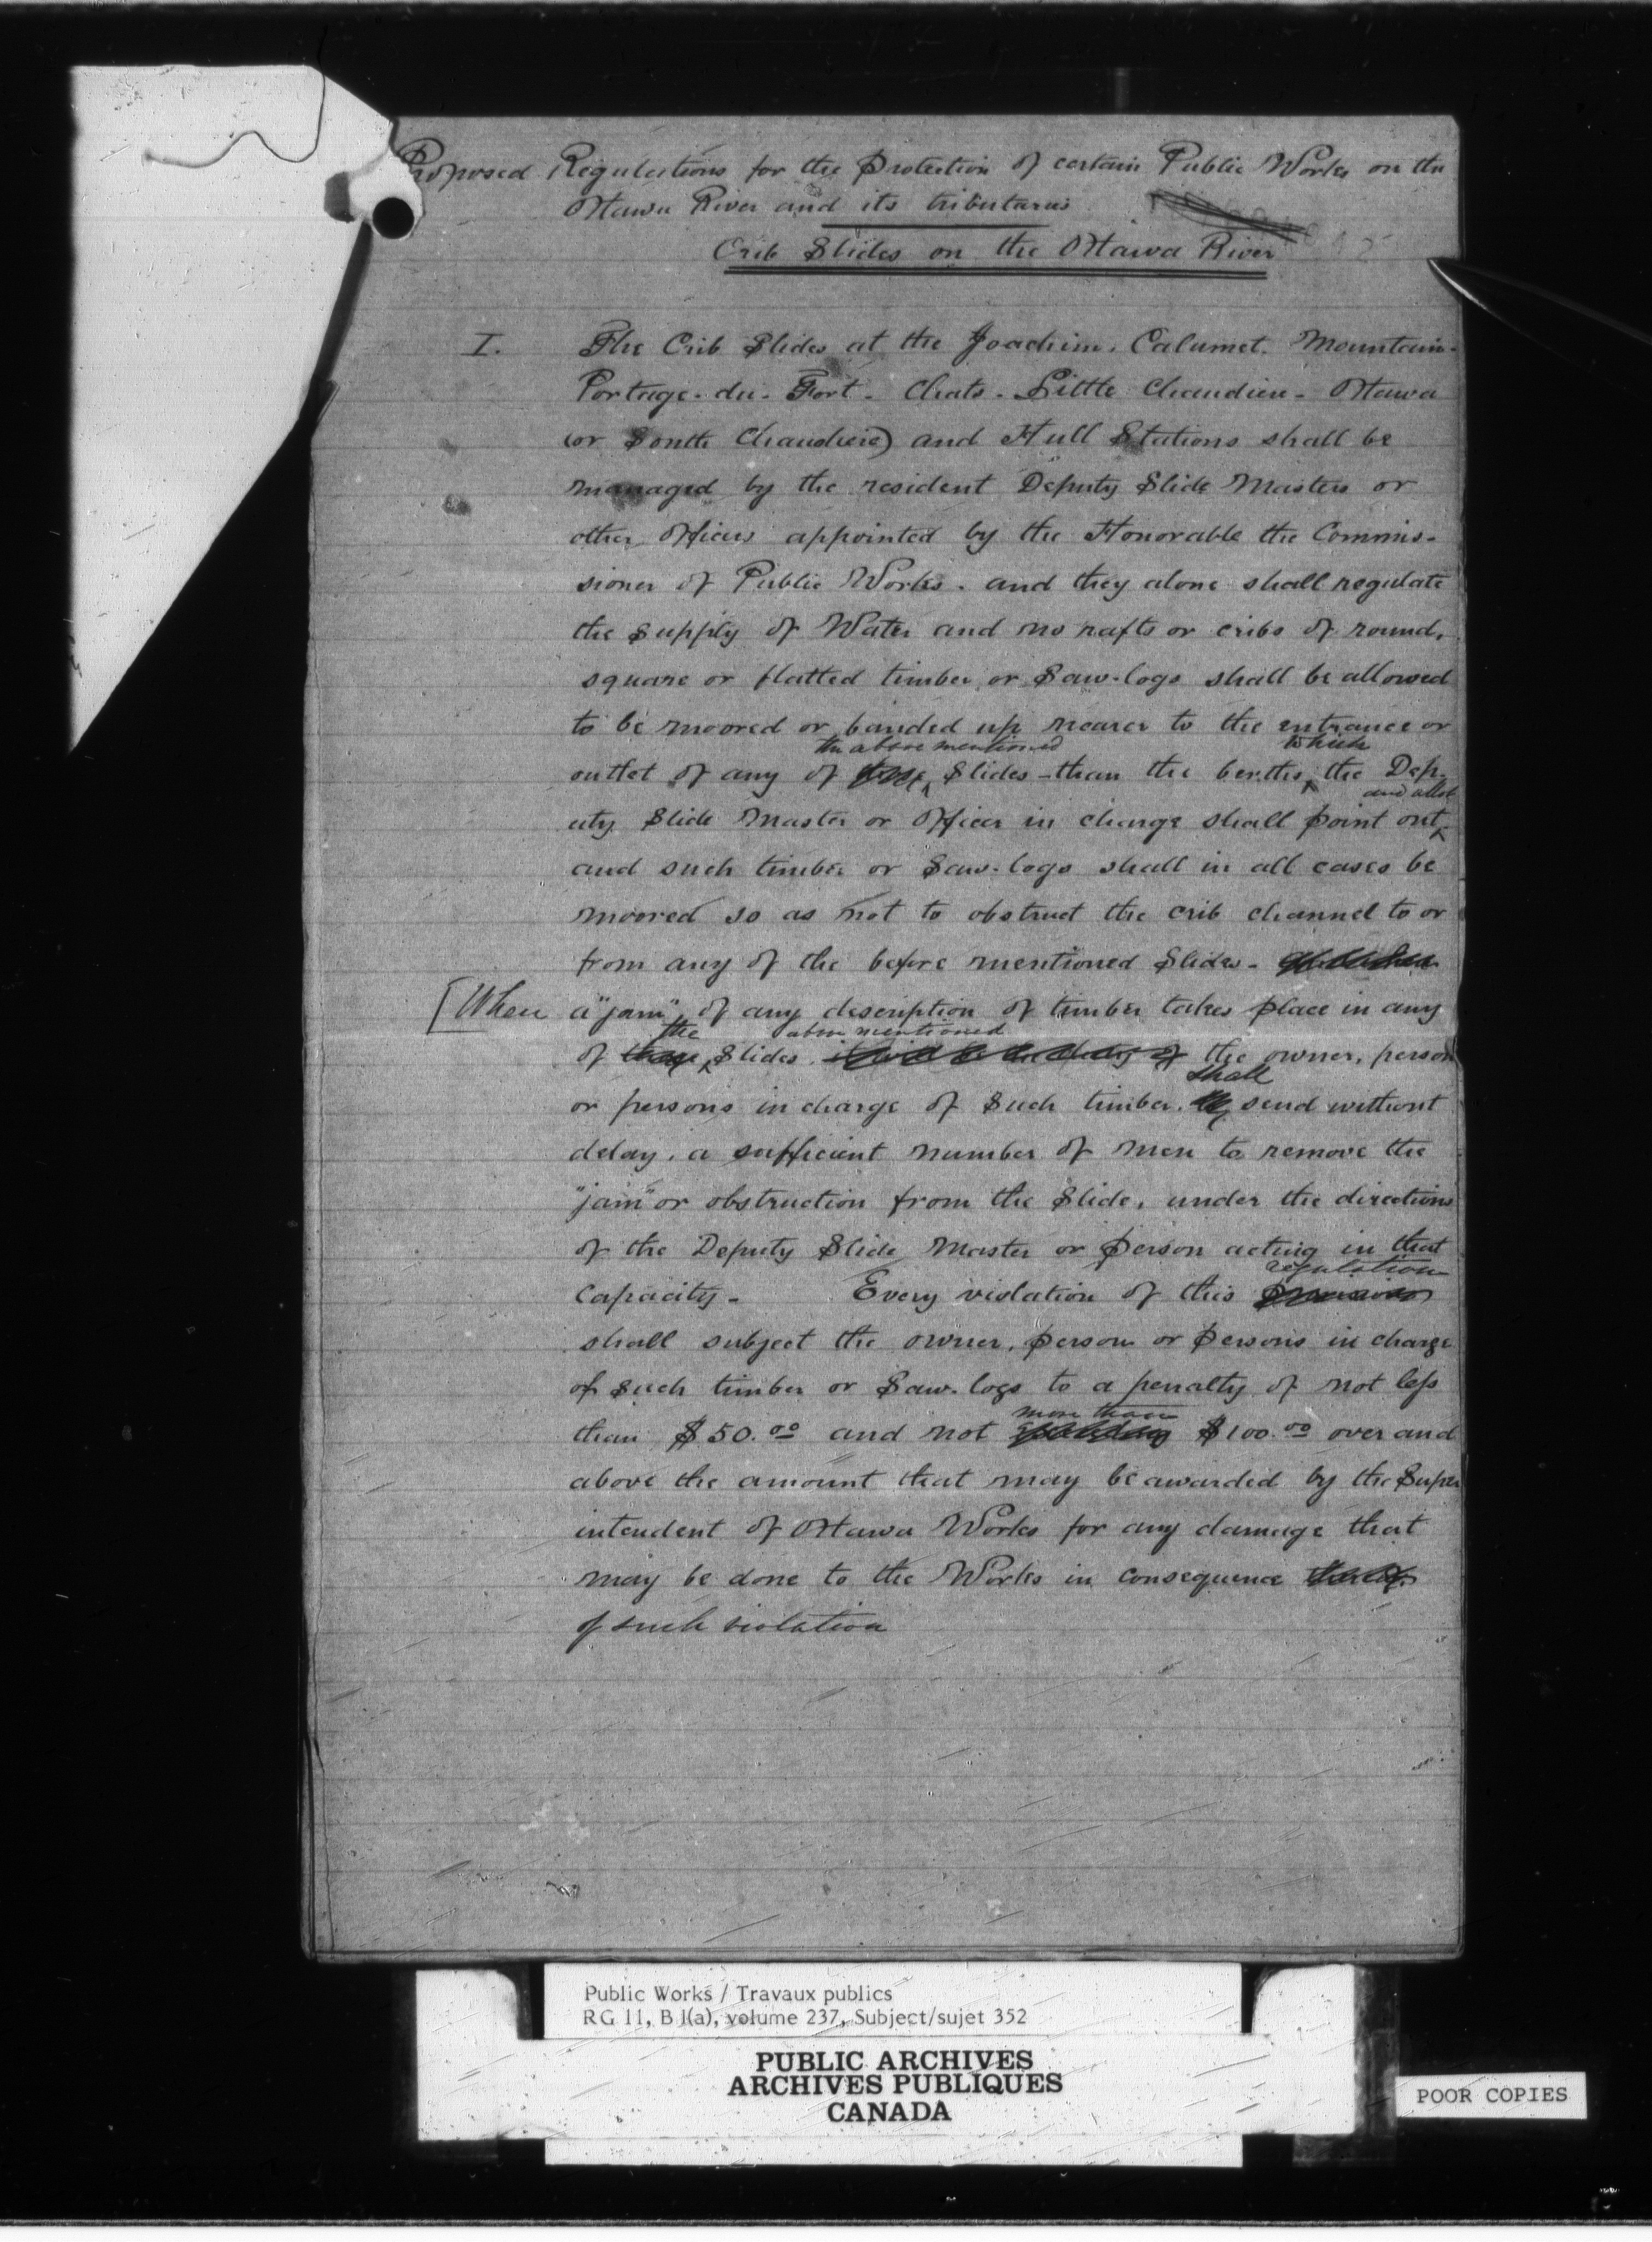 Proposed Regulations for the Protection of certain Public Works on the
Ottawa River and its tributaries
Crib Slides on the Ottawa River
I. The Crib Slides at the Joachim, Calumet. Mountain-
Portage-du-Fort - Chats - Little Chaudiere - Ottawa
(or South Chaudiere) and Hull Stations shall be
managed by the resident Deputy Slide Masters or
other officers appointed by the Honorable the Commis-
sioner of Public Works - and they alone shall regulate
the supply of Water and no rafts or cribs of round,
square or flatted timber or Saw-logs shall be allowed
to be moored or banded up nearer to the entrance or
the above mentioned which
outlet of any of these Slides - than the berths, the Dep-
and allot
uty Slide Master or Officer in charge shall point out
and such timber or Saw-logs shall in all cases be
moored so as not to obstruct the crib channel to or
from any of the before mentioned Slides -
[When a "jam" of any description of timber takes place in any
the above mentioned
of these Slides. it will be the duty of the owner, person
shall
or persons in charge of such timber, to send without
delay, a sufficient number of men to remove the
"jam" or obstruction from the Slide, under the directions
of the Deputy Slide Master or person acting in that
regulation
Capacity - Every violation of this provision
shall subject the owner, person or persons in charge
of such timber or Saw-logs to a penalty of not less
more than
than $50.00 and not $100.00 over and
above the amount that may be awarded by the Super
intendent of Ottawa Works for any damage that
may be done to the Works in consequence thereof.
of such violation
Public Works / Travaux publics
RG 11, B 1(a), volume 237, Subject/sujet 352
PUBLIC ARCHIVES
ARCHIVES PUBLIQUES
CANADA
POOR COPIES